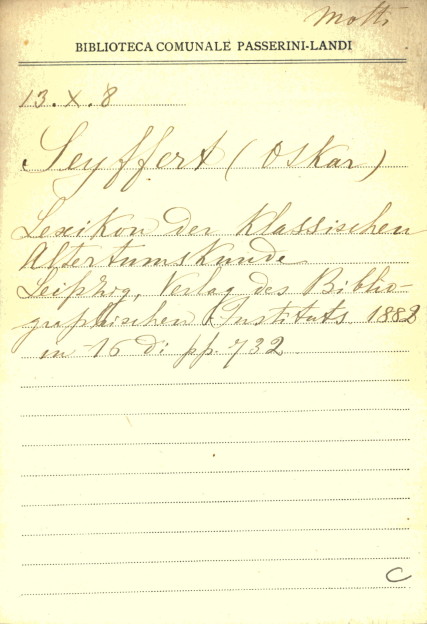 Motti
BIBLIOTECA COMUNALE PASSERINI-LANDI
13. X. 8
Seyffert (Oskar)
Lexikon der klassischen
Altertumskunde
Leipzig, Verlag des Biblio-
graphischen Instituts 1882
in 16 di pp. 732
C